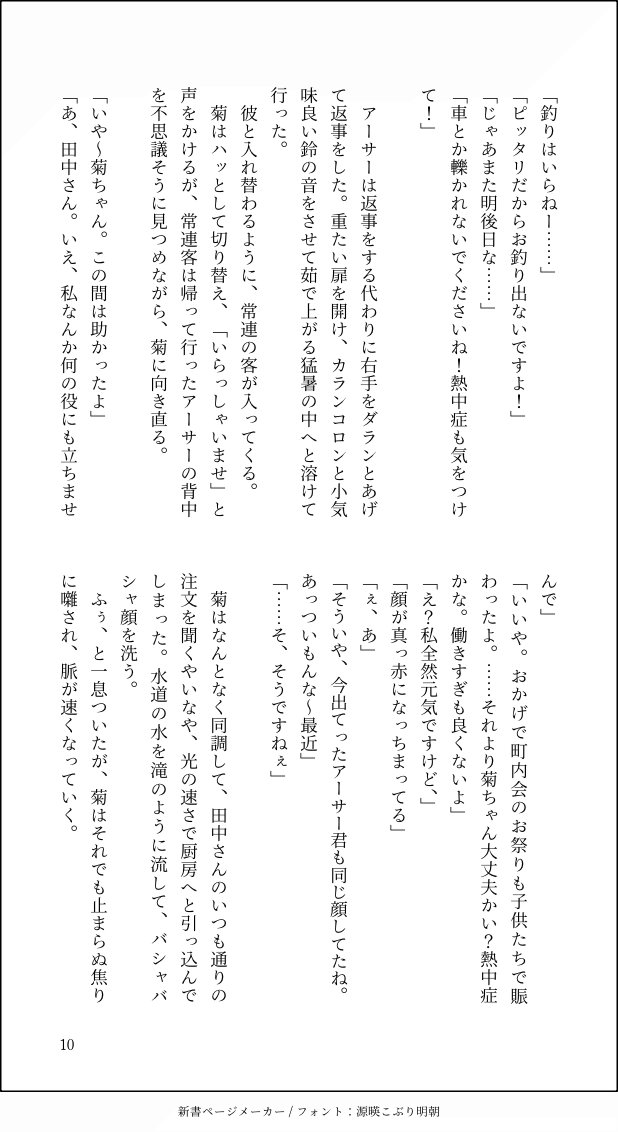 「釣りはいらねー……」
「ピッタリだからお釣り出ないですよ！」
「じゃあまた明後日な……」
「車とか轢かれないでくださいね！熱中症も気をつけ
て！」
アーサーは返事をする代わりに右手をダランとあげ
て返事をした。重たい扉を開け、カランコロンと小気
味良い鈴の音をさせて茹で上がる猛暑の中へと溶けて
行った。
彼と入れ替わるように、常連の客が入ってくる。
菊はハッとして切り替え、「いらっしゃいませ」と
声をかけるが、常連客は帰って行ったアーサーの背中
を不思議そうに見つめながら、菊に向き直る。
「いや〜菊ちゃん。この間は助かったよ」
「あ、田中さん。いえ、私なんか何の役にも立ちませ
んで」
「いいや。おかげで町内会のお祭りも子供たちで賑
わったよ。……それより菊ちゃん大丈夫かい？熱中症
かな。働きすぎも良くないよ」
「え？私全然元気ですけど、」
「顔が真っ赤になっちまってる」
「ぇ、あ」
「そういや、今出てったアーサー君も同じ顔してたね。
あっついもんな〜最近」
「……そ、そうですねぇ」
菊はなんとなく同調して、田中さんのいつも通りの
注文を聞くやいなや、光の速さで厨房へと引っ込んで
しまった。水道の水を滝のように流して、バシャバ
シャ顔を洗う。
ふぅ、と一息ついたが、菊はそれでも止まらぬ焦り
に囃され、脈が速くなっていく。
10
新書ページメーカー / フォント：源暎こぶり明朝